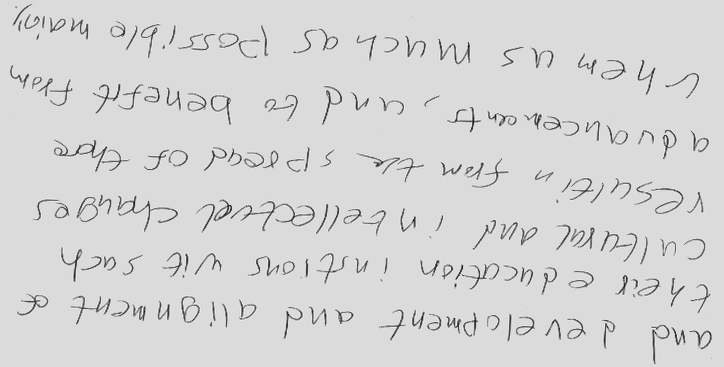 and development and alignment of
their education instions wit such
cultural and intellectual changes
resultin from the spread of those
advancements, and to benefit from
them as much as possible mainly.